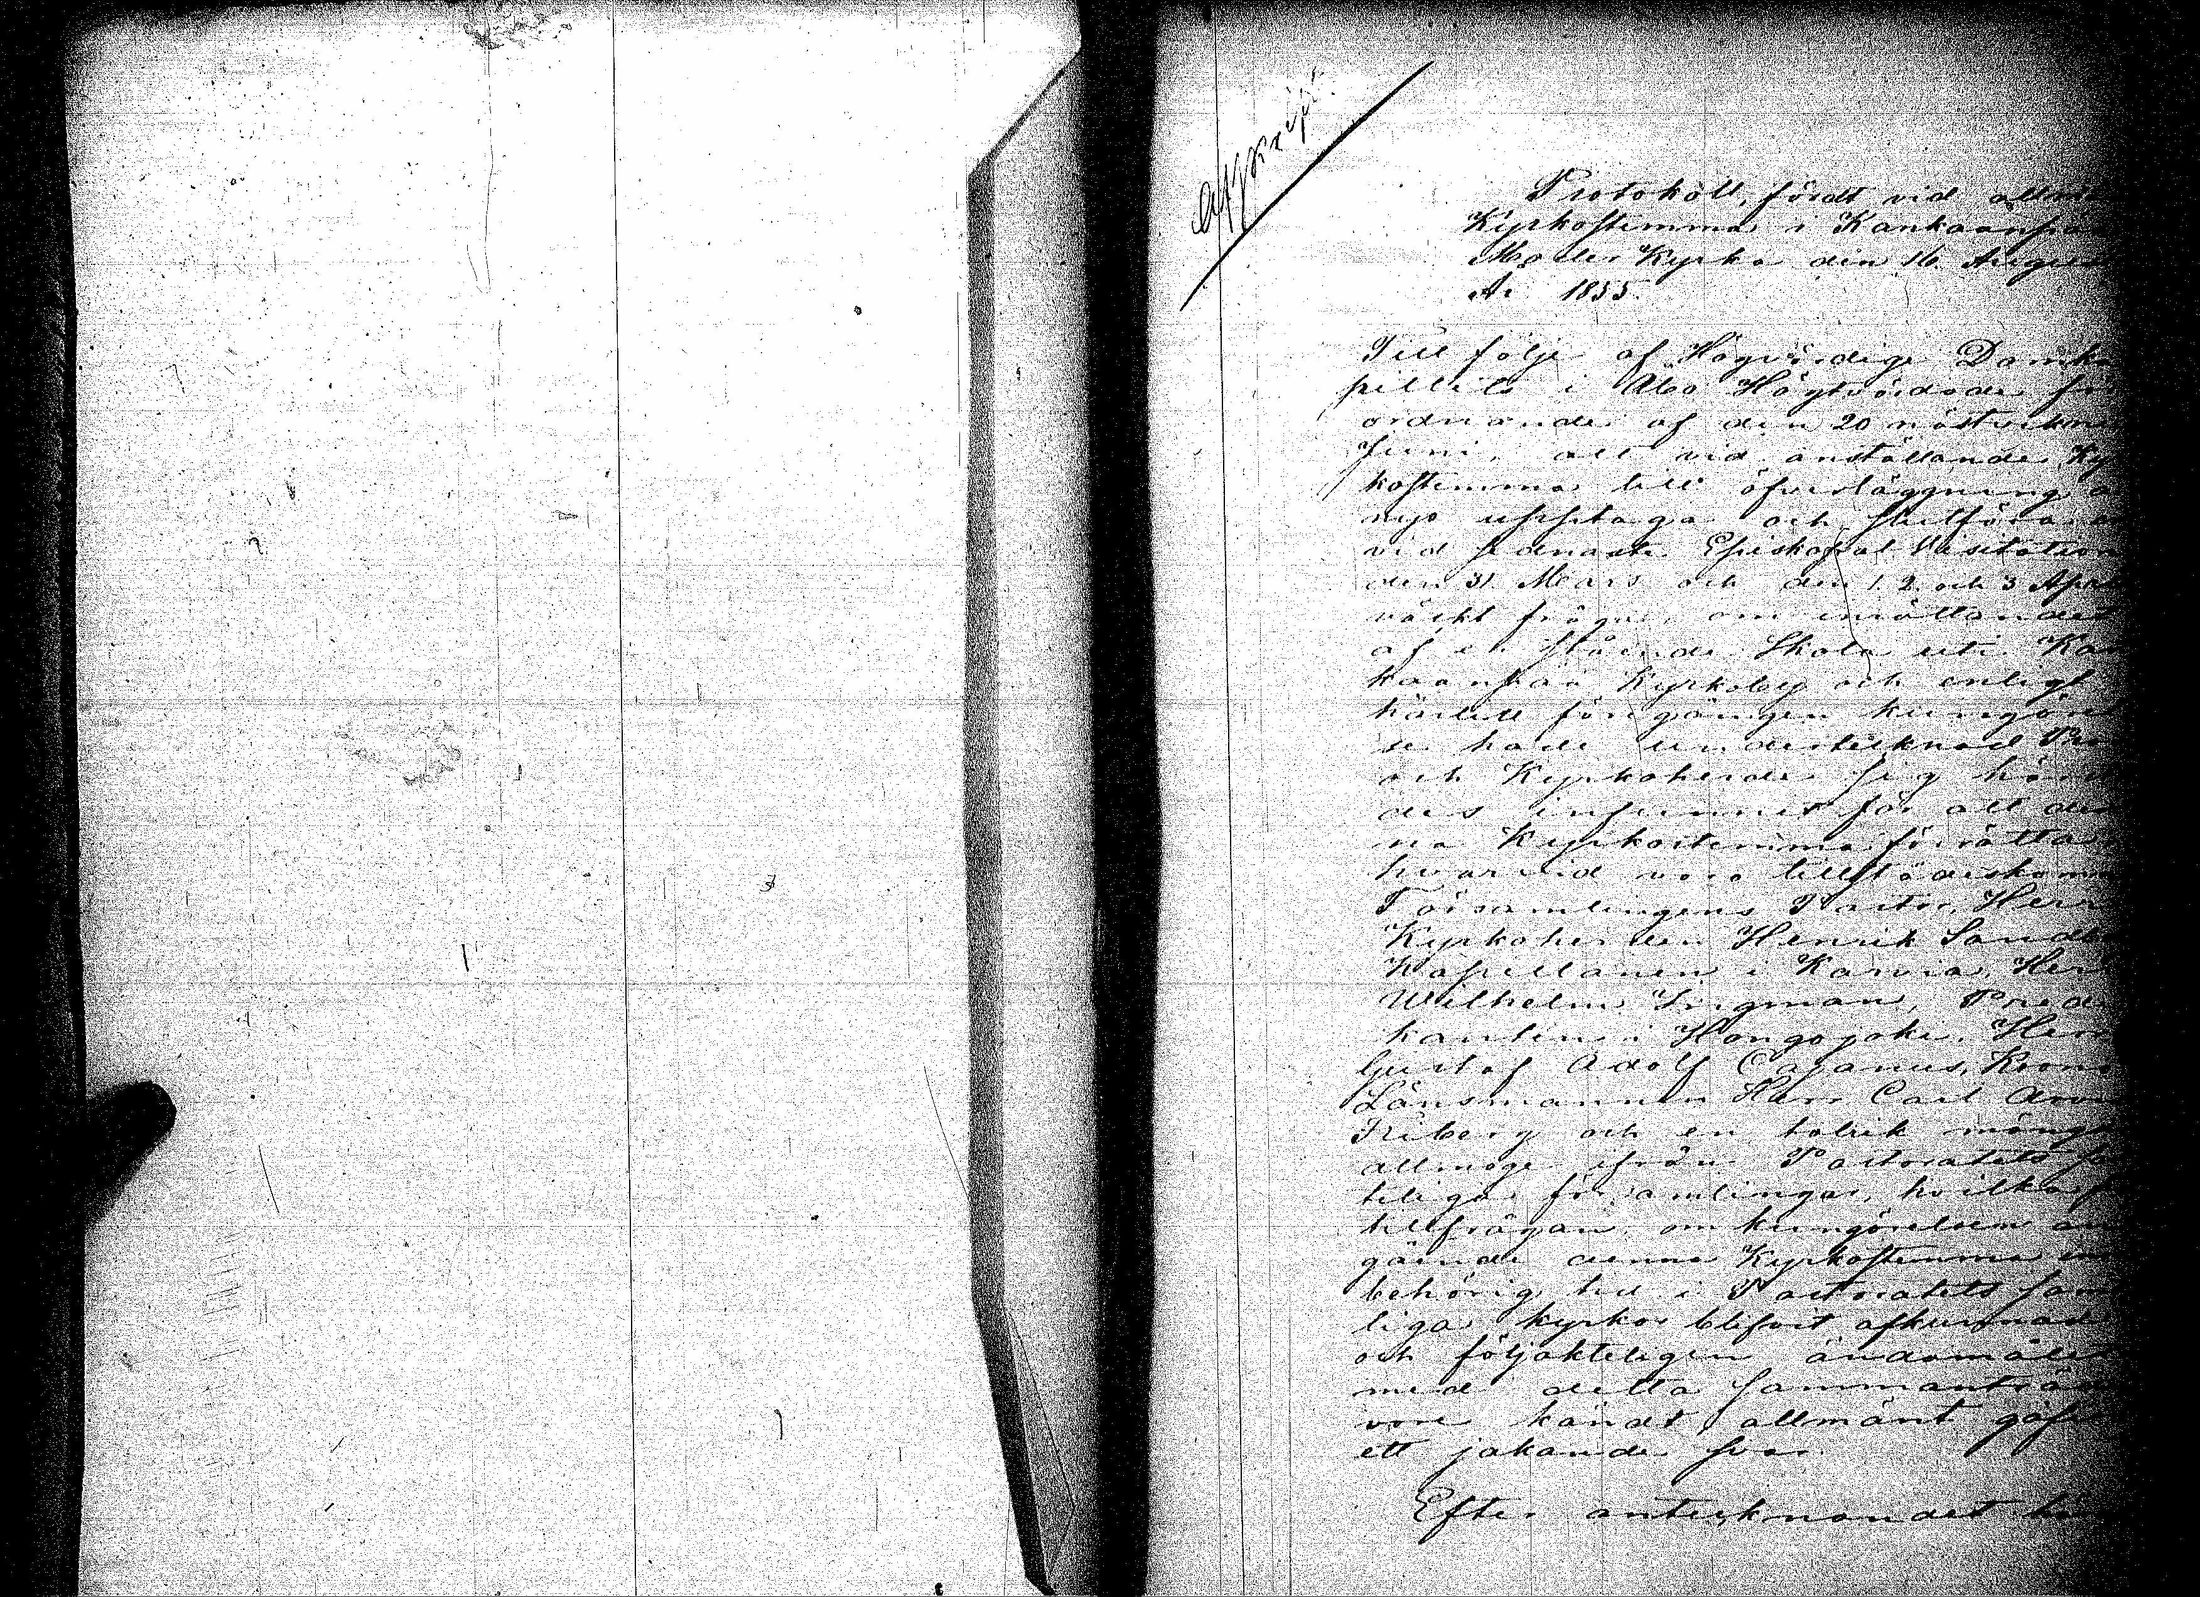 Afskrift.
Protokoll, fördt vid allmän
Kyrkostemma i Kankaanpää
Moder Kyrka den 16 Augusti
År 1855.
Till följe af Högvördige Domka
pitlets i Åbo Högtvördade för
ordnande af den 20 nästvekne
Juni, att vid anställande Kyr
kostemma till öfverläggning å
nyo upptaga och slutföra
vid sednaste Episkopal Visitation
den 31 Mars och den 1. 2. och 3 April
väckt fråga, om inrättandet
af en stående Skola uti Kan
kaanpää Kyrkoby och enligt
härtill föregången kungörel
se hade undertecknad Pro
och Kyrkoherde sig här
des infunnit för att den
na Kyrkostemma förrätta,
hvarvid voro tillstädeskomne
Församlingens Pastor, Herr
Kyrkoherden Henrik Sandb
Kapellanen i Karvia, Herr
Wilhelm Lingman, Predi
kanten i Hongojoki, Herr
Gustaf Adolf Cajanus, Krono
Länsmannen Herr Carl Arv
Friberg och en talrik mängd
allmoge ifrån Pastoratets sam
teliga församlingar, hvilka på
tillfrågan om kungörelsen an
gående denna Kyrkostemma
behörig tid i Pastoratets sam
liga kyrkor blifvit afkunnad
och följakteligen ändamålet
med detta sammanträde
vore kändt allmänt gaf
ett jakande svar.
Efter antecknandet hä